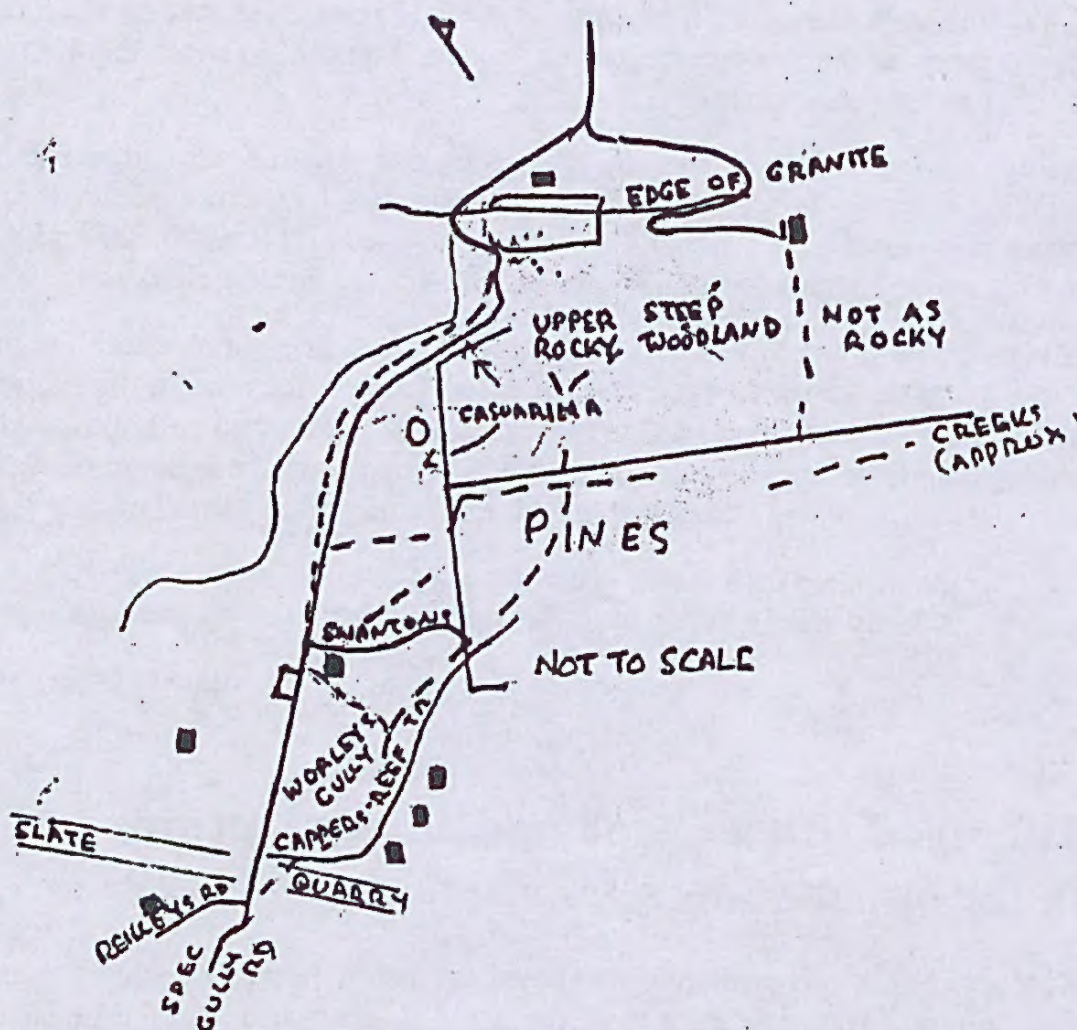 EDGE OF GRANITE
UPPER STEEP
ROCKY WOODLAND
NOT AS
ROCKY
CASUARINA
CREEKS
(APPROX)
PINES
SNANTONS
NOT TO SCALE
WORLEYS
GULLY
CAPPERS REEF TR
SLATE
QUARRY
REILLEYS RD
SPEC
GULLY RD